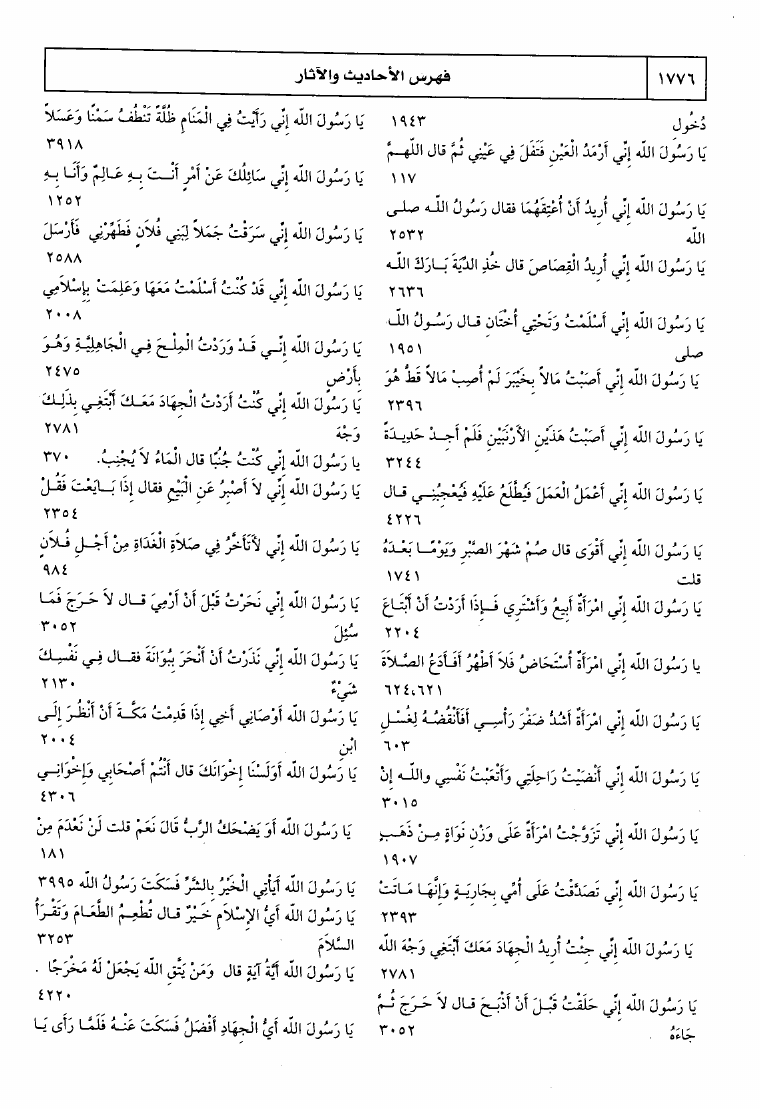 ١٧٧٦
فهرس الأحاديث والآثار
دُخُولِ ١٩٤٣
يَا رَسُولَ اللَّه إِنِّي أَرْمَدُ الْعَيْنِ فَتَفَلَ فِي عَيْنِي ثُمَّ قال اللَّهمَّ
١١٧
يَا رَسُولَ اللَّه إِنِّي أُرِيدُ أَنْ أُعْتِقَهُمَا فقال رَسُولُ اللَّه صلى
الله ٢٥٣٢
يَا رَسُولَ اللَّه إِنِّي أُرِيدُ الْقِصَاصَ قال خُذِ الدِّيَةَ بَارَكَ اللَّه
٢٦٣٦
يَا رَسُولَ اللَّه إِنِّي أَسْلَمْتُ وَتَحْتِي أُخْتَانِ قال رَسُولُ اللَّه
صلى ١٩٥١
يَا رَسُولَ اللَّه إِنِّي أَصَبْتُ مَالاً بِخَيْبَرَ لَمْ أُصِبْ مَالاً قَطُّ هُوَ
٢٣٩٦
يَا رَسُولَ اللَّه إِنِّي أَصَبْتُ هَذَيْنِ الأَرْنَبَيْنِ فَلَمْ أَجِدْ حَدِيدَةً
٣٢٤٤
يَا رَسُولَ اللَّه إِنِّي أَعْمَلُ الْعَمَلَ فَيُطَّلَعُ عَلَيْهِ فَيُعْجِبُنِي قال
٤٢٢٦
يَا رَسُولَ اللَّه إِنِّي أَقْوَى قال صُمْ شَهْرَ الصَّبْرِ وَيَوْمًا بَعْدَهُ
قلت ١٧٤١
يَا رَسُولَ اللَّه إِنِّي امْرَأَةٌ أَبِيعُ وَأَشْتَرِي فَإِذَا أَرَدْتُ أَنْ أَبْتَاعَ
٢٢٠٤
يا رَسُولَ اللَّه إِنِّي امْرَأَةٌ أُسْتَحَاضُ فَلاَ أَطْهُرُ أَفَأَدَعُ الصَّلاَةَ
٦٢٤،٦٢١
يَا رَسُولَ اللَّه إِنِّي امْرَأَةٌ أَشُدُّ ضَفْرَ رَأْسِي أَفَأَنْقُضُهُ لِغُسْلِ
٦٠٣
يَا رَسُولَ اللَّه إِنِّي أَنْضَيْتُ رَاحِلَتِي وَأَتْعَبْتُ نَفْسِي واللَّه إِنْ
٣٠١٥
يَا رَسُولَ اللَّه إِنِّي تَزَوَّجْتُ امْرَأَةً عَلَى وَزْنِ نَوَاةٍ مِنْ ذَهَبٍ
١٩٠٧
يَا رَسُولَ اللَّه إِنِّي تَصَدَّقْتُ عَلَى أُمِّي بِجَارِيَةٍ وَإِنَّهَا مَاتَتْ
٢٣٩٣
يَا رَسُولَ اللَّه إِنِّي جِئْتُ أُرِيدُ الْجِهَادَ مَعَكَ أَبْتَغِي وَجْهَ اللَّه
٢٧٨١
يَا رَسُولَ اللَّه إِنِّي حَلَقْتُ قَبْلَ أَنْ أَذْبَحَ قال لاَ حَرَجَ ثُمَّ
جَاءَهُ ٣٠٥٢
يَا رَسُولَ اللَّه إِنِّي رَأَيْتُ فِي الْمَنَامِ ظُلَّةً تَنْطُفُ سَمْنًا وَعَسَلاً
٣٩١٨
يَا رَسُولَ اللَّه إِنِّي سَائِلُكَ عَنْ أَمْرٍ أَنْتَ بِهِ عَالِمٌ وَأَنَا بِهِ
١٢٥٢
يَا رَسُولَ اللَّه إِنِّي سَرَقْتُ جَمَلاً لِبَنِي فُلاَنٍ فَطَهِّرْنِي فَأَرْسَلَ
٢٥٨٨
يَا رَسُولَ اللَّه إِنِّي قَدْ كُنْتُ أَسْلَمْتُ مَعَهَا وَعَلِمَتْ بِإِسْلاَمِي
٢٠٠٨
يَا رَسُولَ اللَّه إِنِّي قَدْ وَرَدْتُ الْمِلْحَ فِي الْجَاهِلِيَّةِ وَهُوَ
بِأَرْضٍ ٢٤٧٥
يَا رَسُولَ اللَّه إِنِّي كُنْتُ أَرَدْتُ الْجِهَادَ مَعَكَ أَبْتَغِي بِذَلِكَ
وَجْهَ ٢٧٨١
يا رَسُولَ اللَّه إِنِّي كُنْتُ جُنُبًا قال الْمَاءُ لاَ يُجْنِبُ. ٣٧٠
يَا رَسُولَ اللَّه إِنِّي لاَ أَصْبِرُ عَنِ الْبَيْعِ فقال إِذَا بَايَعْتَ فَقُلْ
٢٣٥٤
يَا رَسُولَ اللَّه إِنِّي لأَتَأَخَّرُ فِي صَلاَةِ الْغَدَاةِ مِنْ أَجْلِ فُلاَنٍ
٩٨٤
يَا رَسُولَ اللَّه إِنِّي نَحَرْتُ قَبْلَ أَنْ أَرْمِيَ قال لاَ حَرَجَ فَمَا
سُئِلَ ٣٠٥٢
يَا رَسُولَ اللَّه إِنِّي نَذَرْتُ أَنْ أَنْحَرَ بِبُوَانَةَ فقال فِي نَفْسِكَ
شَيْءٌ ٢١٣٠
يَا رَسُولَ اللَّه أَوْصَانِي أَخِي إِذَا قَدِمْتُ مَكَّةَ أَنْ أَنْظُرَ إِلَى
ابْنِ ٢٠٠٤
يَا رَسُولَ اللَّه أَوَلَسْنَا إِخْوَانَكَ قال أَنْتُمْ أَصْحَابِي وَإِخْوَانِي
٤٣٠٦
يَا رَسُولَ اللَّه أَوَ يَضْحَكُ الرَّبُّ قَالَ نَعَمْ قلت لَنْ نَعْدَمَ مِنْ
١٨١
يَا رَسُولَ اللَّه أَيَأْتِي الْخَيْرُ بِالشَّرِّ فَسَكَتَ رَسُولُ اللَّه ٣٩٩٥
يَا رَسُولَ اللَّه أَيُّ الإِسْلاَمِ خَيْرٌ قال تُطْعِمُ الطَّعَامَ وَتَقْرَأُ
السَّلاَمَ ٣٢٥٣
يَا رَسُولَ اللَّه أَيَّةُ آيَةٍ قال وَمَنْ يَتَّقِ اللَّه يَجْعَلْ لَهُ مَخْرَجًا .
٤٢٢٠
يَا رَسُولَ اللَّه أَيُّ الْجِهَادِ أَفْضَلُ فَسَكَتَ عَنْهُ فَلَمَّا رَأَى يَا